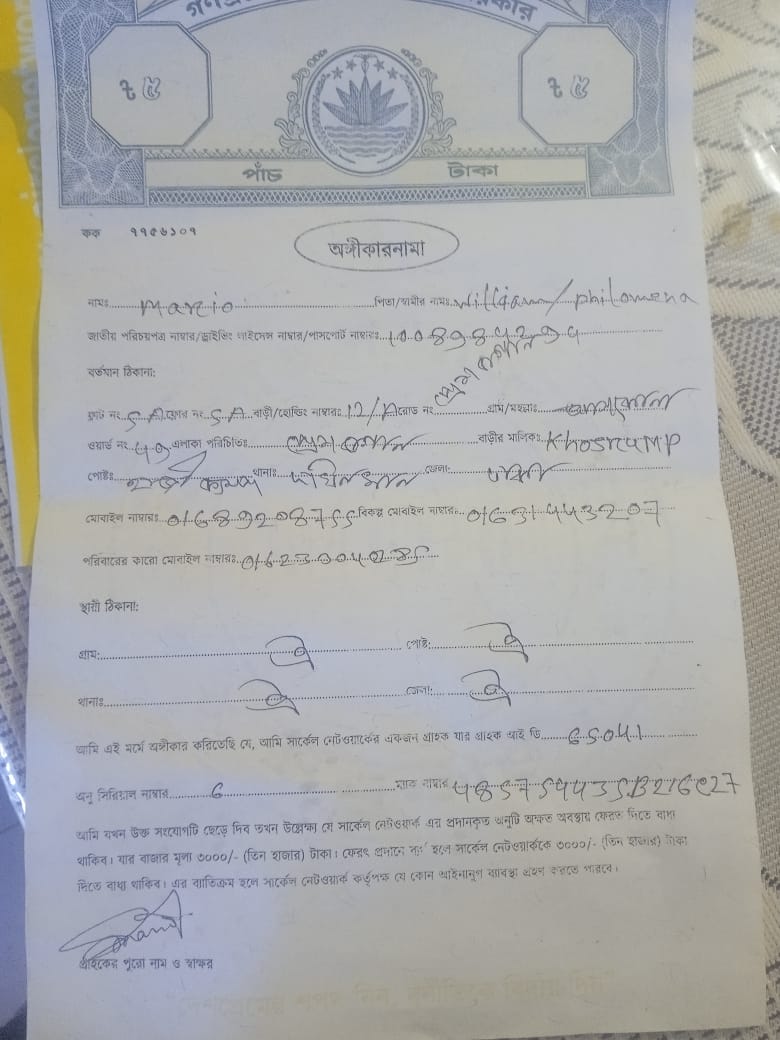 ৳ ৫ ৳ ৫
পাঁচ টাকা
কক ৭৭৫৬১০৭
অঙ্গীকারনামা
নামঃ Mario পিতা/স্বামীর নামঃ William/philomena
জাতীয় পরিচয়পত্র নাম্বার/ড্রাইভিং লাইসেন্স নাম্বার/পাসপোর্ট নাম্বারঃ
বর্তমান ঠিকানা:
ফ্লাট নং 5A ফ্লোর নং 5A বাড়ী/হোল্ডিং নাম্বারঃ 12/A রোড নং প্রেম বাগান গ্রাম/মহল্লাঃ
ওয়ার্ড নং এলাকা পরিচিতঃ প্রেম বাগান বাড়ীর মালিকঃ Khosru MP
পোষ্টঃ থানাঃ দক্ষিনখান জেলাঃ ঢাকা
মোবাইল নাম্বারঃ 01689208755 বিকল্প মোবাইল নাম্বারঃ 01631443207
পরিবারের কারো মোবাইল নাম্বারঃ
স্থায়ী ঠিকানা:
গ্রাম: ঐ পোষ্ট: ঐ
থানাঃ ঐ জেলা: ঐ
আমি এই মর্মে অঙ্গীকার করিতেছি যে, আমি সার্কেল নেটওয়ার্কের একজন গ্রাহক যার গ্রাহক আই ডি 65041
অনু সিরিয়াল নাম্বার 6 ম্যাক নাম্বার
আমি যখন উক্ত সংযোগটি ছেড়ে দিব তখন উল্লেখ্য যে সার্কেল নেটওয়ার্ক এর প্রদানকৃত অনুটি অক্ষত অবস্থায় ফেরত দিতে বাধ্য
থাকিব। যার বাজার মূল্য ৩০০০/- (তিন হাজার) টাকা। ফেরৎ প্রদানে ব্যর্থ হলে সার্কেল নেটওয়ার্ককে ৩০০০/- (তিন হাজার) টাকা
দিতে বাধ্য থাকিব। এর ব্যতিক্রম হলে সার্কেল নেটওয়ার্ক কর্তৃপক্ষ যে কোন আইনানুগ ব্যবস্থা গ্রহণ করতে পারবে।
গ্রাহকের পুরো নাম ও স্বাক্ষর